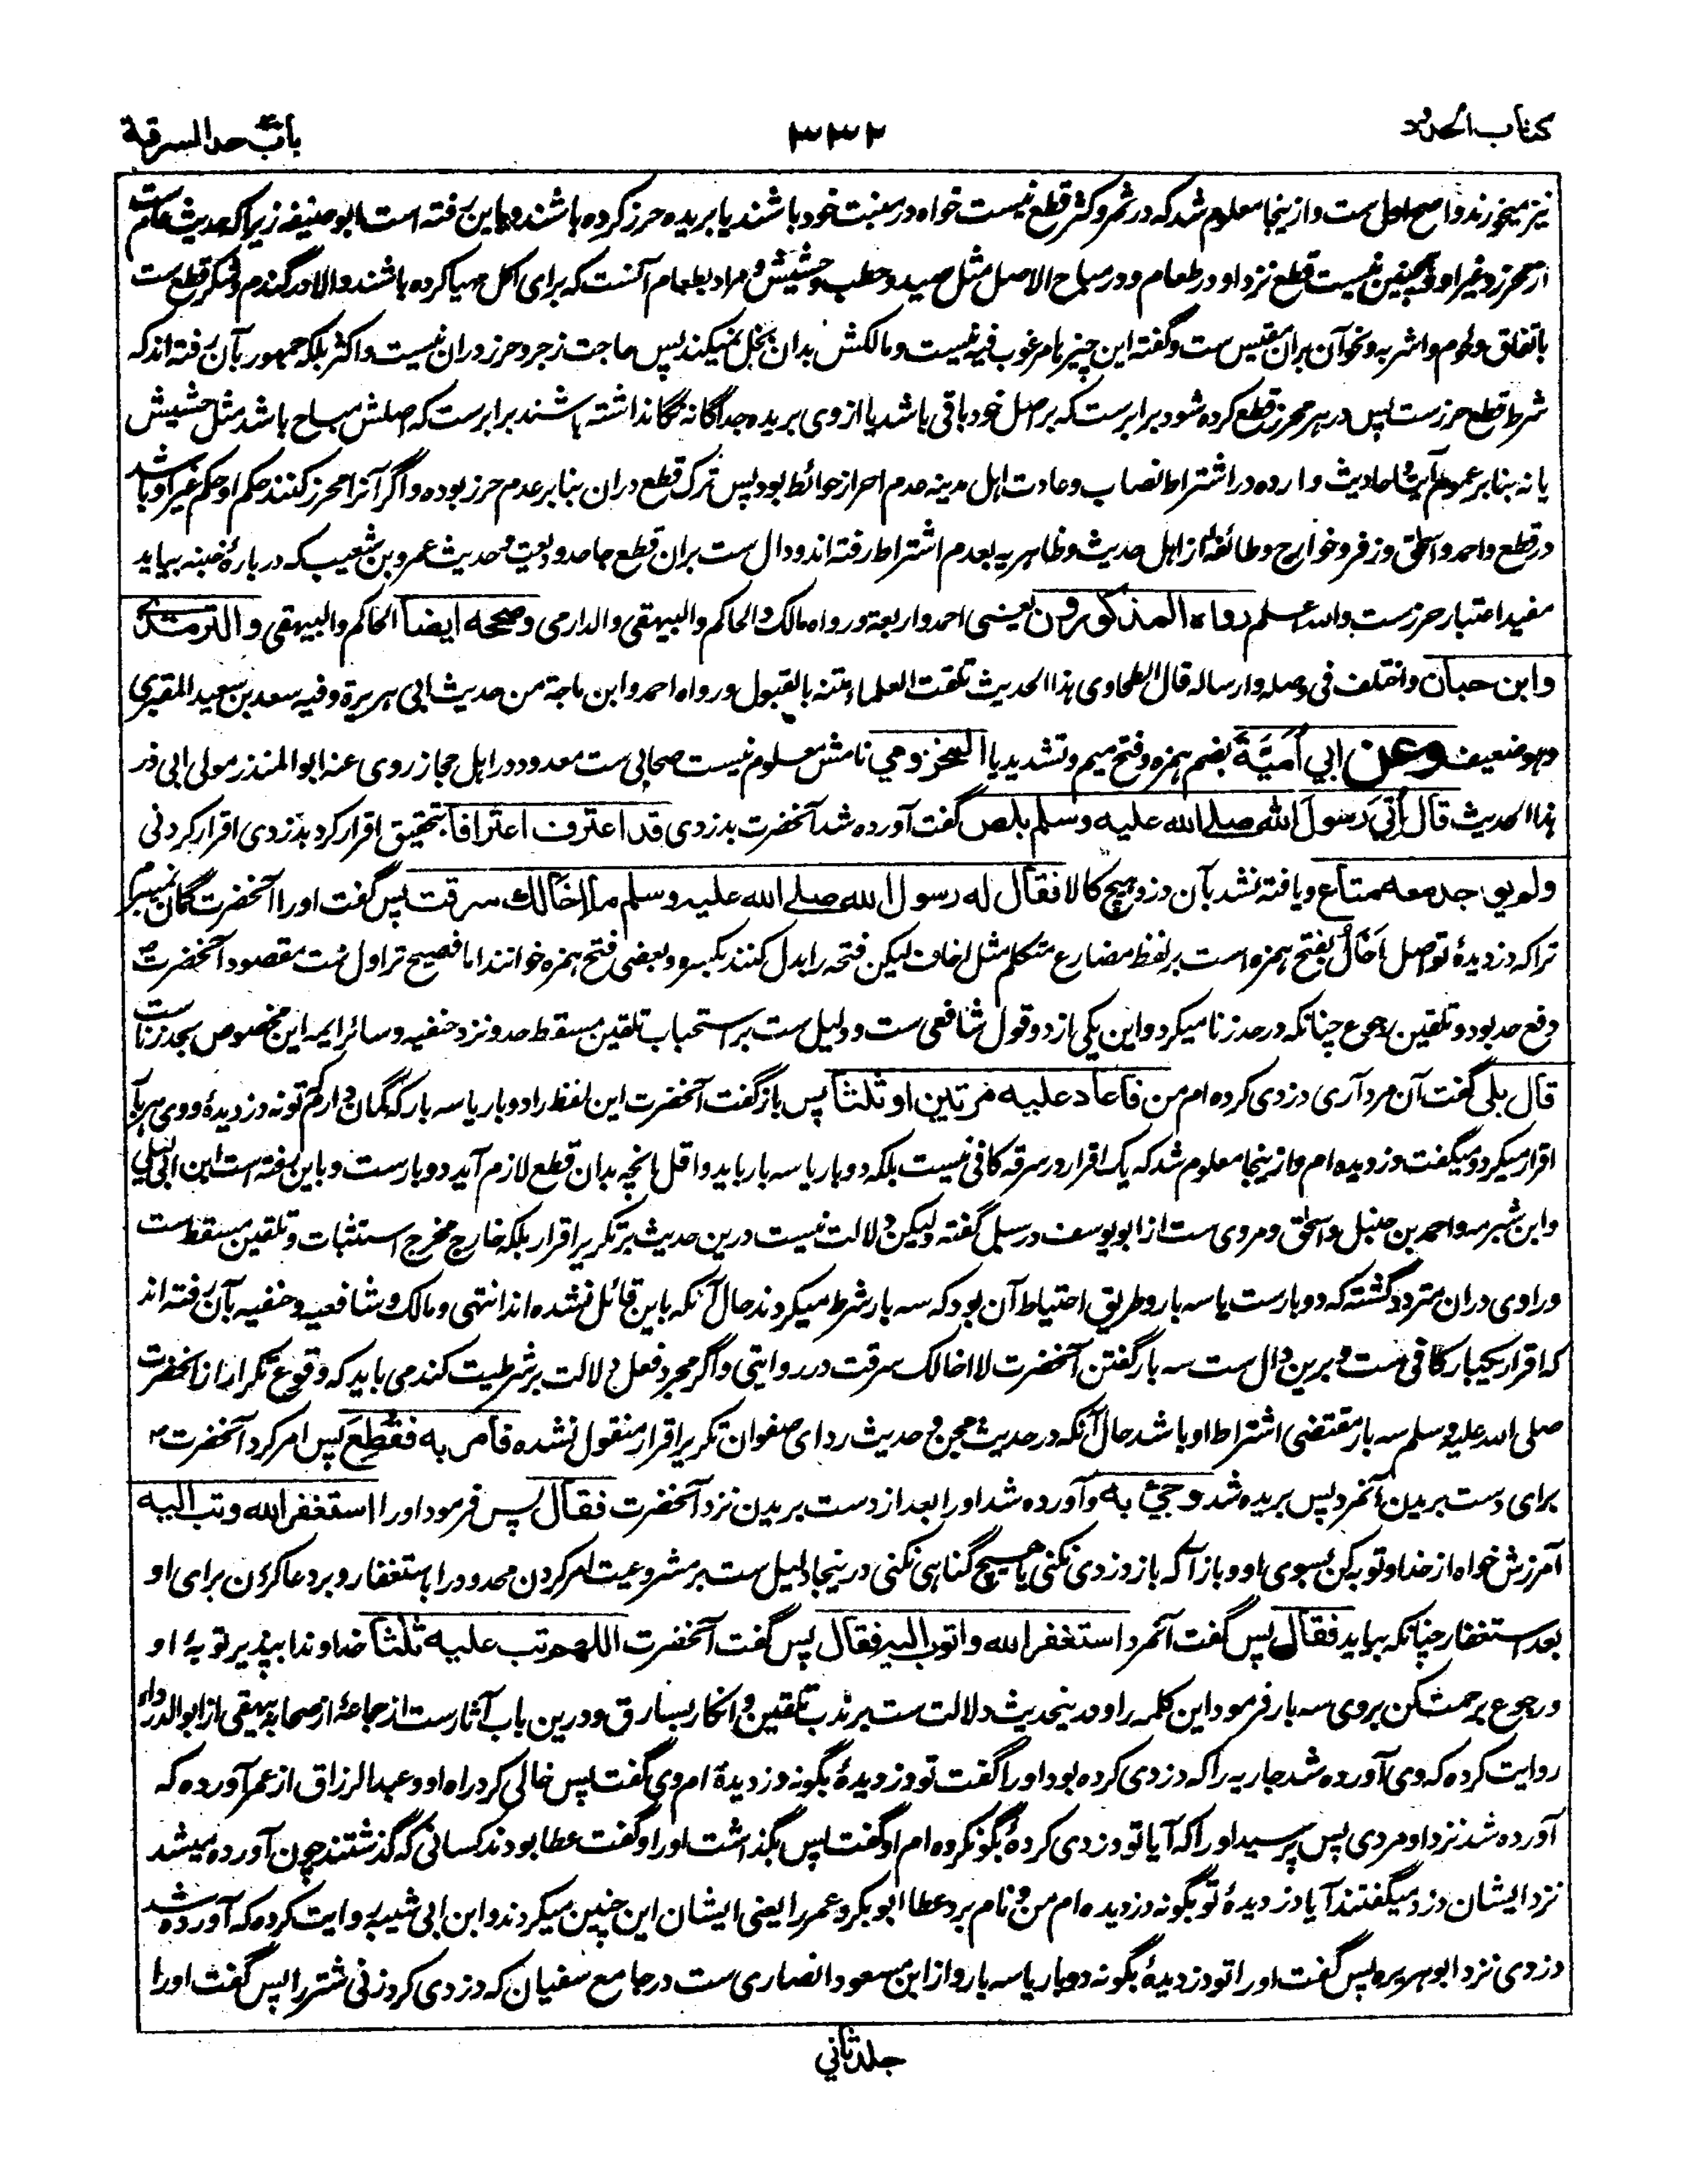 کتاب الحدود
۳۳۲
باب حد السرقة
نیز میخورند و اصح اول ست و ازینجا معلوم شد که در ثمر و کثر قطع نیست خواه در منبت خود باشند یا بریده حرز کرده باشند و باین رفته است ابو حنیفه زیرا که حدیث عام ست
از محرز و غیر او و همچنین نیست قطع نزد او در طعام و در مباح الاصل مثل صید و حطب و حشیش و مراد بطعام آنست که برای اکل مهیا کرده باشند و الا در گندم و شکر قطع ست
باتفاق و لحوم و اشربه و نحو آن بران مقیس ست و گفته این چیزها مرغوب فیه نیست و مالکش بدان بخل نمیکند پس حاجت زجر و حرز دران نیست و اکثر بلکه جمهور بآن رفته اند که
شرط قطع حرز ست پس در هر محرز قطع کرده شود برابر ست که بر اصل خود باقی باشد یا از وی بریده جداگانه نگاه داشته باشند برابر ست که اصلش مباح باشد مثل حشیش
یا نه بنا بر عموم آیت و احادیث وارده در اشتراط نصاب و عادت اهل مدینه عدم احراز حوائط بود پس ترک قطع دران بنا بر عدم حرز بوده و اگر آنرا محرز کنند حکم او حکم غیر او باشد
در قطع و احمد و اسحق و زفر و خوارج و طائفهٔ از اهل حدیث و ظاهریه بعدم اشتراط رفته اند و دال ست بران قطع جاحد ودیعت و حدیث عمرو بن شعیب که در بارهٔ خبنه بیاید
مفید اعتبار حرز ست و الله اعلم رواه المذکورون یعنی احمد و اربعة و رواه مالک و الحاکم و البیهقی و الدارمی و صححه ایضا الحاکم و البیهقی و الترمذی
و ابن حبان و اختلف فی وصله و ارساله قال الطحاوی هذا الحدیث تلقت العلماء متنه بالقبول و رواه احمد و ابن ماجة من حدیث ابی هریرة و فیه سعد بن سعید المقبری
و هو ضعیف وعن ابي أُمَيَّةَ بضم همزه و فتح میم و تشدید یا المخزومي نامش معلوم نیست صحابی ست معدود در اهل حجاز روی عنه ابو المنذر مولی ابی ذر
هذا الحدیث قال اُتِيَ رسول الله صلے الله علیه وسلم بلص گفت آورده شد آنحضرت بدزدی قد اعترف اعترافا بتحقیق اقرار کرد بدزدی اقرار کردنی
ولم یوجد معه متاع و یافته نشد بآن دزد هیچ کالا فقال له رسول الله صلے الله علیه وسلم ما إخالك سرقت پس گفت او را آنحضرت گمان نمیبرم
ترا که دزدیدهٔ تو اصل اَخَالُ بفتح همزه است بر لفظ مضارع متکلم مثل اخاف لیکن فتحه را بدل کنند بکسره و بعضی فتح همزه خوانند اما فصیح تر اول ست مقصود آنحضرت
دفع حد بود و تلقین رجوع چنانکه در حد زنا میکرد و این یکی از دو قول شافعی ست و دلیل ست بر استحباب تلقین مسقط حد و نزد حنفیه و سائر ایمه این مخصوص بحد زنا ست
قال بلی گفت آن مرد آری دزدی کرده ام من فاعاد علیه مرتین او ثلثا پس باز گفت آنحضرت این لفظ را دو بار یا سه بار که گمان دارم که تو نه دزدیدهٔ و وی هر بار
اقرار میکرد و میگفت دزدیده ام و ازینجا معلوم شد که یک اقرار در سرقه کافی نیست بلکه دو بار یا سه بار باید و اقل آنچه بدان قطع لازم آید دو بار ست و باین رفته است ابن ابی لیلی
و ابن شبرمه و احمد بن حنبل و اسحق و مروی ست از ابو یوسف در سبل گفته ولیکن دلالت نیست درین حدیث بر تکریر اقرار بلکه خارج مخرج استثبات و تلقین مسقط ست
و راوی دران متردد گشته که دو بار ست یا سه بار و طریق احتیاط آن بود که سه بار شرط میکردند حال آنکه باین قائل نشده اند انتهی و مالک و شافعیه و حنفیه بآن رفته اند
که اقرار یکبار کافی ست و برین دال ست سه بار گفتن آنحضرت لا اخالک سرقت در روایتی و اگر مجرد فعل دلالت بر شرطیت کند می باید که وقوع تکرار از آنحضرت
صلی الله علیه وسلم سه بار مقتضی اشتراط او باشد حال آنکه در حدیث مجن و حدیث ردای صفوان تکریر اقرار منقول نشده فامر به فقطع پس امر کرد آنحضرت
برای دست بریدن آنمرد پس بریده شد وجیٔ به و آورده شد او را بعد از دست بریدن نزد آنحضرت فقال پس فرمود او را استغفر الله وتب الیه
آمرزش خواه از خدا و توبه کن بسوی او و باز آ که باز دزدی نکنی یا هیچ گناهی نکنی درینجا دلیل ست بر مشروعیت امر کردن محدود را باستغفار و بر دعا کردن برای او
بعد استغفار چنانکه بیاید فقال پس گفت آنمرد استغفر الله واتوب الیه فقال پس گفت آنحضرت اللهم تب علیه ثلثا خداوندا بپذیر توبهٔ او
و رجوع برحمت کن بر وی سه بار فرمود این کلمه را و درینحدیث دلالت ست بر ندب تلقین و انکار بسارق و درین باب آثار ست از جماعهٔ از صحابه بیهقی از ابو الدرداء
روایت کرده که وی آورده شد جاریه را که دزدی کرده بود او را گفت تو دزدیدهٔ بگو نه دزدیده ام وی گفت پس خالی کرد راه او و عبد الرزاق از عمر آورده که
آورده شد نزد او مردی پس پرسید او را که آیا تو دزدی کردهٔ بگو نکرده ام او گفت پس بگذاشت او را و گفت عطا بودند کسانی که گذشتند چون آورده میشد
نزد ایشان دزد میگفتند آیا دزدیدهٔ تو بگو نه دزدیده ام من و نام برد عطا ابو بکر و عمر را یعنی ایشان این چنین میکردند و ابن ابی شیبه روایت کرده که آورده شد
دزدی نزد ابو هریره پس گفت او را تو دزدیدهٔ بگو نه دو بار یا سه بار و از ابن مسعود انصاری ست در جامع سفیان که دزدی کرد زنی شتر را پس گفت او را
جلد ثاني